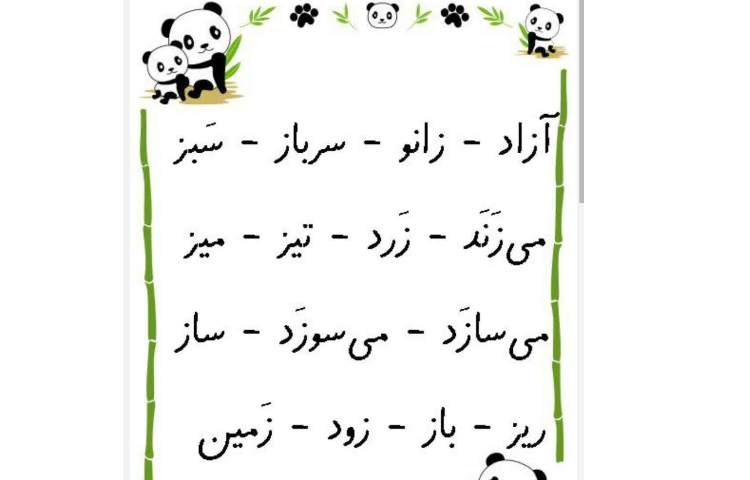 آزاد - زانو - سرباز - سَبز
می‌زَنَد - زَرد - تیز - میز
می‌سازَد - می‌سوزَد - ساز
ریز - باز - زود - زَمین